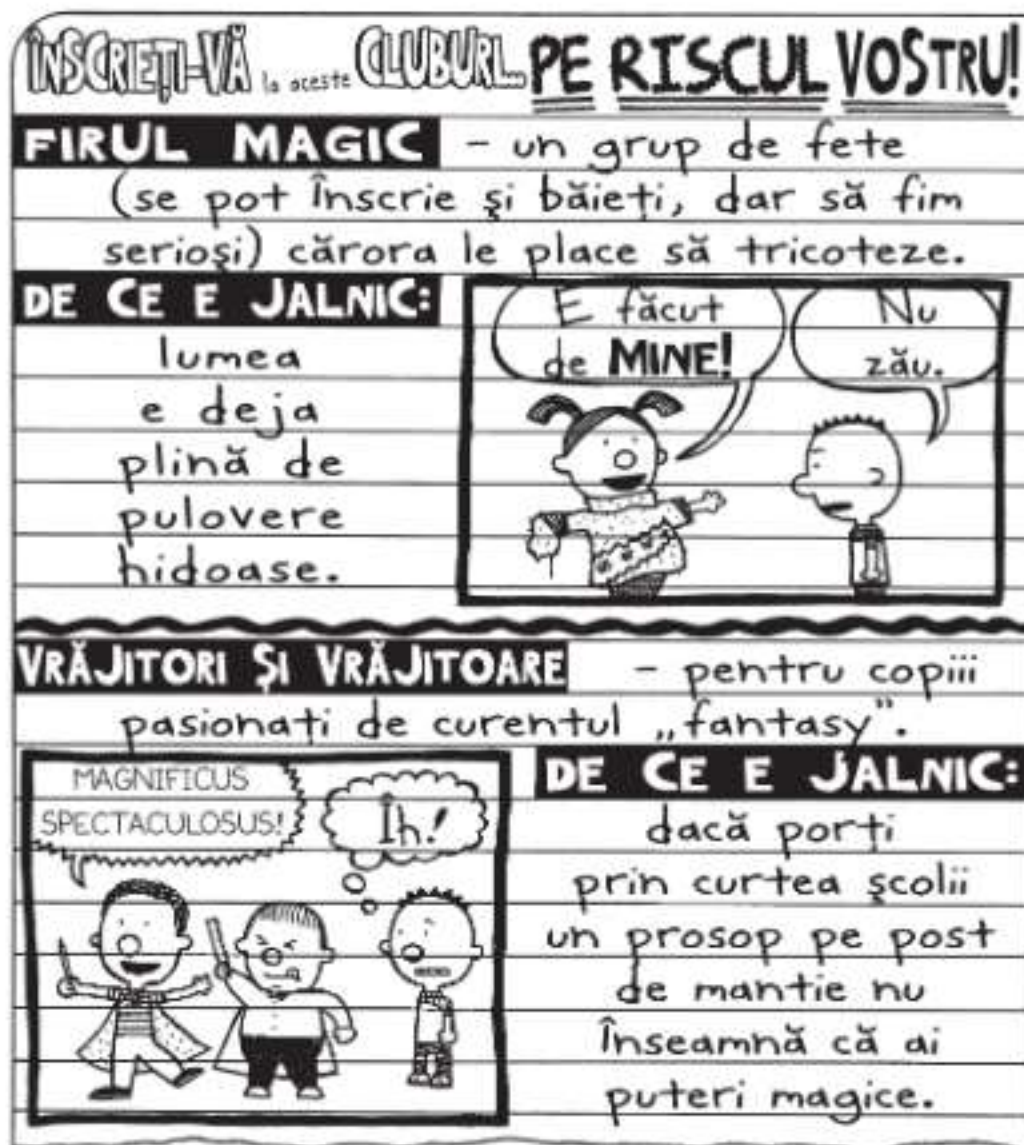 ÎNSCRIEȚI-VĂ la aceste CLUBURI... PE RISCUL VOSTRU!
FIRUL MAGIC – un grup de fete
(se pot înscrie și băieți, dar să fim
serioși) cărora le place să tricoteze.
DE CE E JALNIC:
lumea
e deja
plină de
pulovere
hidoase.
E făcut
de MINE!
Nu
zău.
VRĂJITORI ȘI VRĂJITOARE – pentru copiii
pasionați de curentul „fantasy”.
MAGNIFICUS
SPECTACULOSUS!
Îh!
DE CE E JALNIC:
dacă porți
prin curtea școlii
un prosop pe post
de mantie nu
înseamnă că ai
puteri magice.